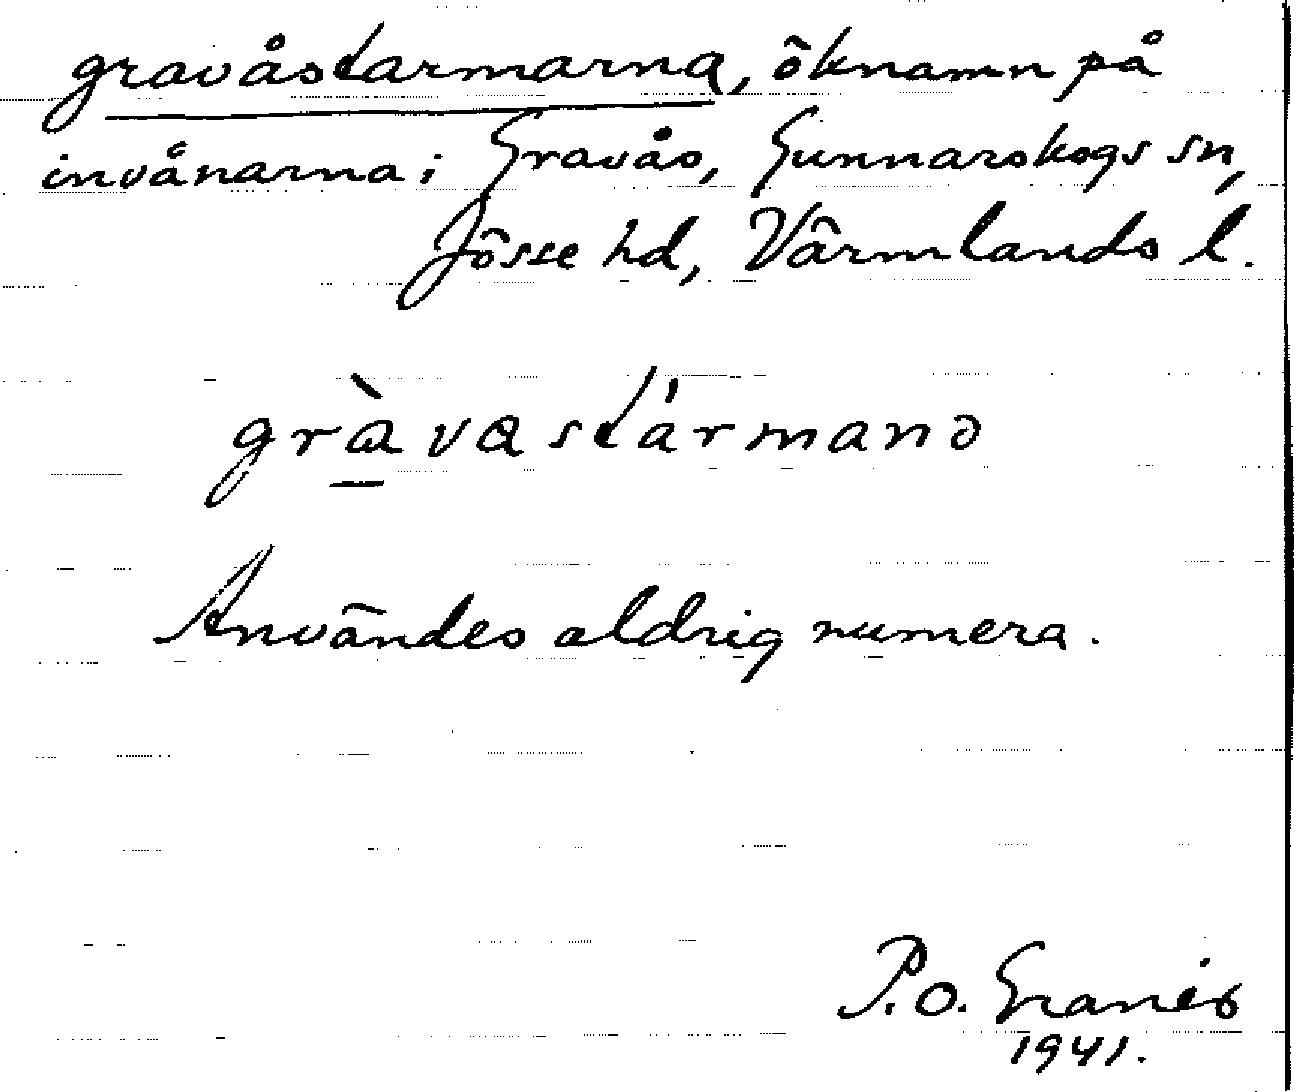 gravåstarmarna, öknamn på
invånarna i Gravås, Gunnarskogs sn,
Jösse hd, Värmlands l.
gràvastármanə
Användes aldrig numera.
P.O.
1941.